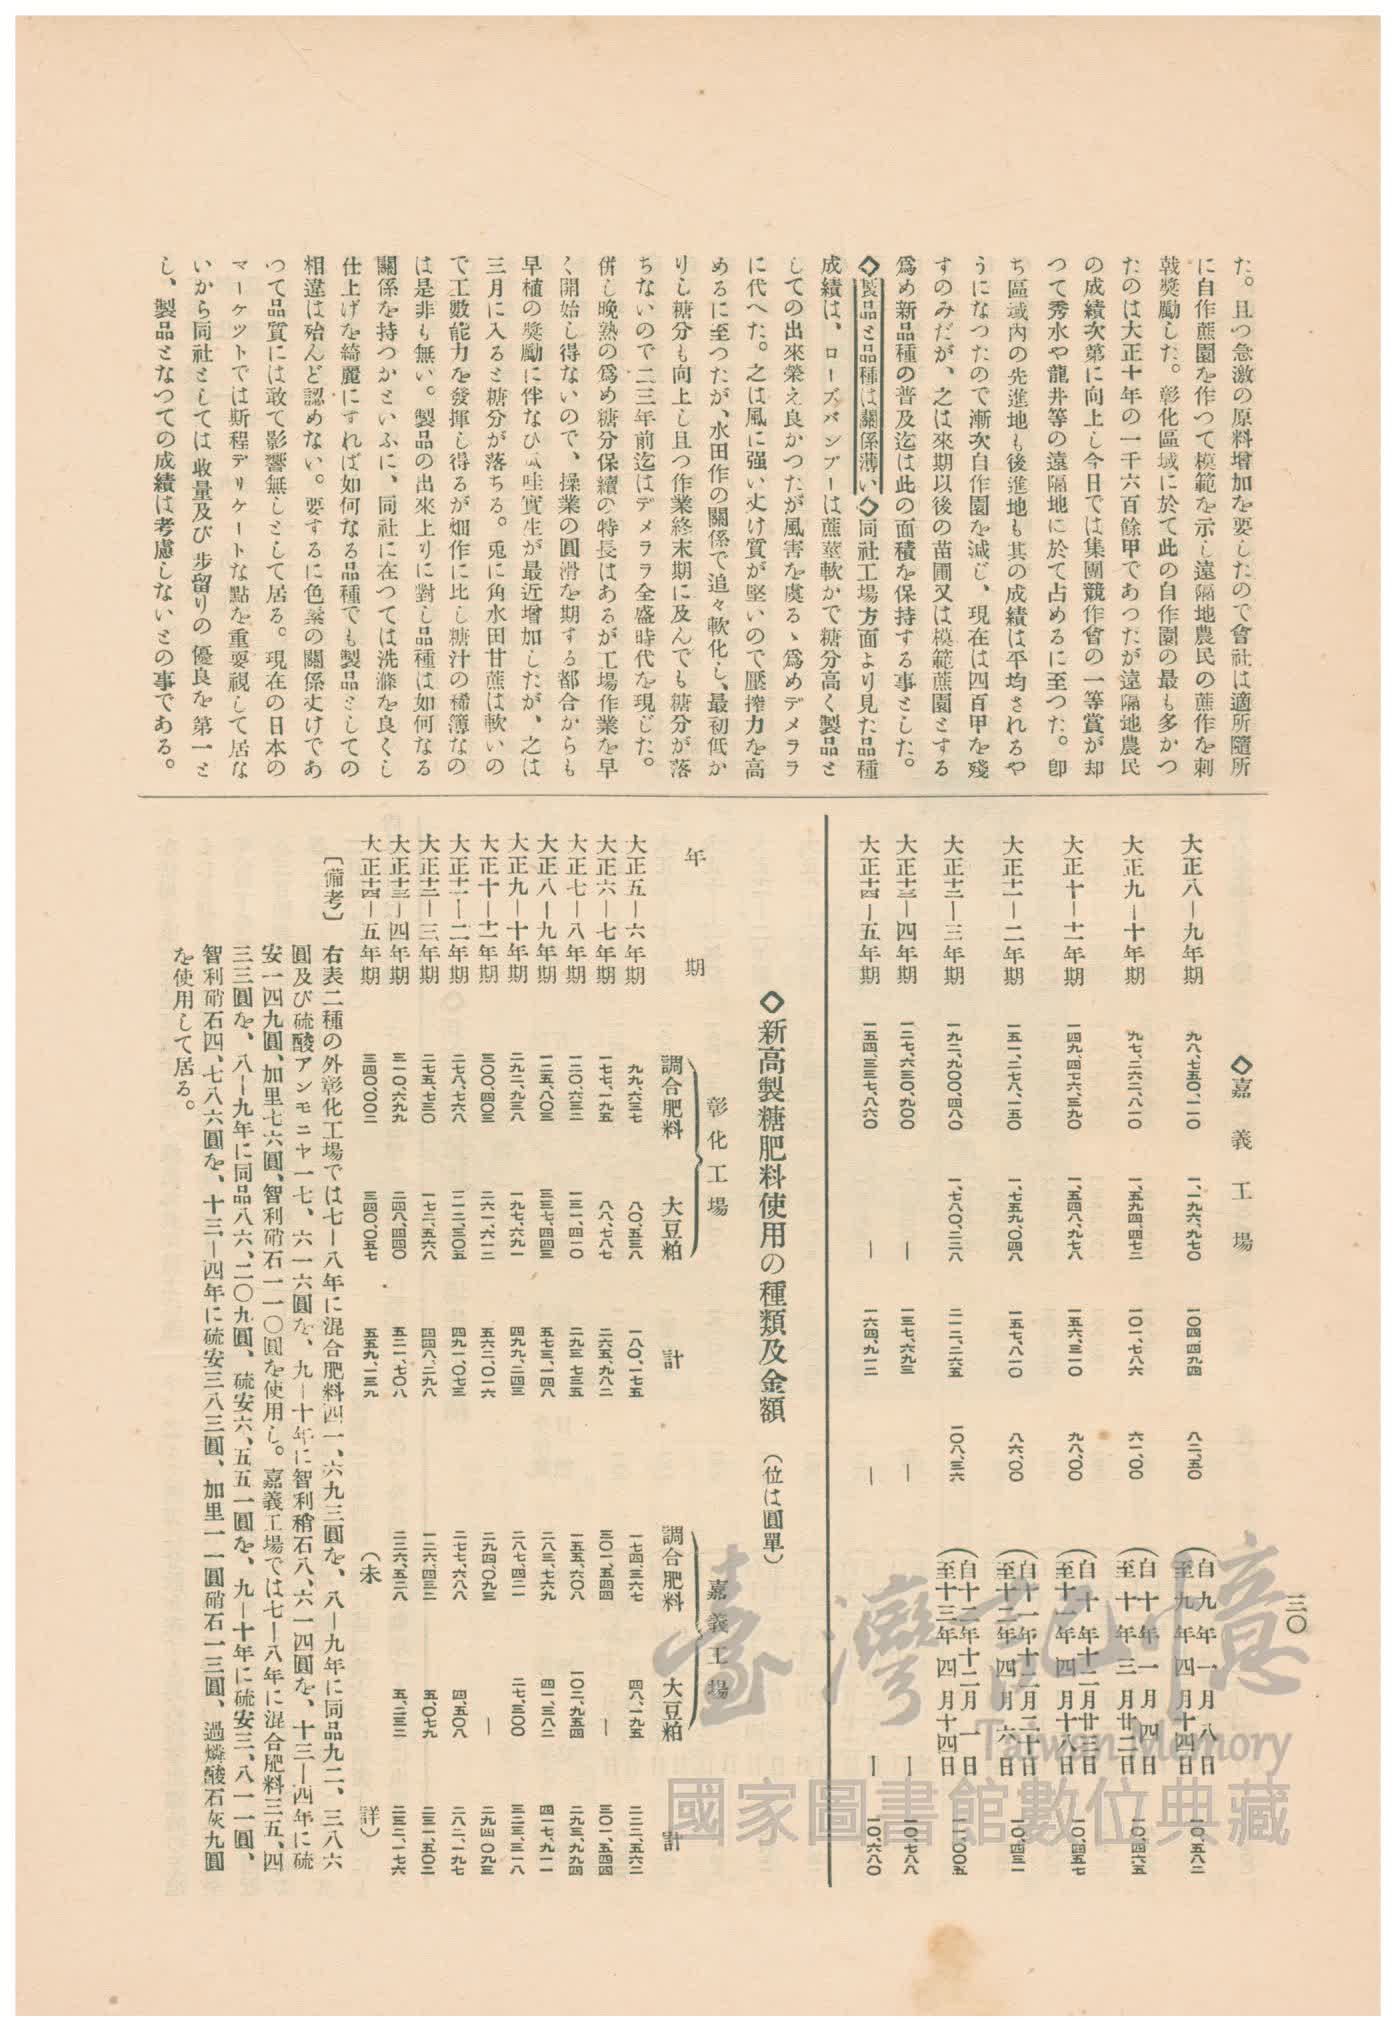 三〇
た。且つ急激の原料增加を要したので會社は適所隨所
に自作蔗園を作つて模範を示し遠隔地農民の蔗作を刺
戟奬勵した。彰化區域に於て此の自作園の最も多かつ
たのは大正十年の一千六百餘甲であつたが遠隔地農民
の成績次第に向上し今日では集團競作會の一等賞が却
つて秀水や龍井等の遠隔地に於て占めるに至つた。卽
ち區域內の先進地も後進地も其の成績は平均されるや
うになつたので漸次自作園を減じ、現在は四百甲を殘
すのみだが、之は來期以後の苗圃又は模範蔗園とする
爲め新品種の普及迄は此の面積を保持する事とした。
◇製品と品種は關係薄い◇同社工場方面より見た品種
成績は、ローズバンブーは蔗莖軟かで糖分高く製品と
しての出來榮え良かつたが風害を虞るゝ爲めデメララ
に代へた。之は風に强い丈け質が堅いので壓搾力を高
めるに至つたが、水田作の關係で追々軟化し、最初低か
りし糖分も向上し且つ作業終末期に及んでも糖分が落
ちないので二三年前迄はデメララ全盛時代を現じた。
併し晩熟の爲め糖分保續の特長はあるが工場作業を早
く開始し得ないので、操業の圓滑を期する都合からも
早植の奬勵に伴なひ爪哇實生が最近增加したが、之は
三月に入ると糖分が落ちる。兎に角水田甘蔗は軟いの
で工數能力を發揮し得るが畑作に比し糖汁の稀簿なの
は是非も無い。製品の出來上りに對し品種は如何なる
關係を持つかといふに、同社に在つては洗滌を良くし
仕上げを綺麗にすれば如何なる品種でも製品としての
相違は殆んど認めない。要するに色素の關係丈けであ
つて品質には敢て影響無しとして居る。現在の日本の
マーケツトでは斯程デリケートな點を重要視して居な
いから同社としては收量及び步留りの優良を第一と
し、製品となつての成績は考慮しないとの事である。
◇嘉義工場
大正八―九年期 九八、七五〇、一一〇 一、一九六、九七〇 一〇四四九四 八二、五〇 (自九年一月八日 至九年四月十四日) 一〇、五八二
大正九―十年期 九七、二六二、八一〇 一、五九四、四七二 一〇一、七八六 六一、〇〇 (自十年一月四日 至十年三月廿二日) 一〇、四六五
大正十―十一年期 一四九、四七六、三九〇 一、五四八、九七八 一五六、三一〇 九八、〇〇 (自十年十二月廿三日 至十一年四月十八日) 一〇、四五七
大正十一―二年期 一五一、二七八、一五〇 一、七五九、〇四八 一五七、八一〇 八六、〇〇 (自十一年十二月二十日 至十二年四月六日) 一〇、四三一
大正十二―三年期 一九二、九〇〇、四八〇 一、七八〇、二二八 二一二、二六五 一〇八、三六 (自十二年十二月一日 至十三年四月十四日) 一一、〇〇五
大正十三―四年期 一二七、六三〇、九〇〇 ― 一三七、六九三 ― ― 一〇、七八八
大正十四―五年期 一五四、三三七、八六〇 ― 一六四、九一二 ― ― 一〇、六八〇
◇新高製糖肥料使用の種類及金額 (位は圓單)
年期 彰化工場 嘉義工場
調合肥料 大豆粕 計 調合肥料 大豆粕 計
大正五―六年期 九九、六三七 八〇、五三八 一八〇、一七五 一七四、三六七 四八、一九五 二二二、五六二
大正六―七年期 一七七、一九五 八八、七八七 二六五、九八二 三〇一、五四四 ― 三〇一、五四四
大正七―八年期 一二〇、六三二 一三一、四一〇 二九三、七三五 一五五、六〇八 一〇二、九五四 二九三、九九四
大正八―九年期 一二五、八〇三 三三七、四四三 五七三、一四八 二八三、七六九 四一、三八二 四一七、九一一
大正九―十年期 二九二、九三八 一九七、六九一 四九九、二四三 二八七、四二一 二七、三〇〇 三二三、三一八
大正十―十一年期 三〇〇、四〇三 二六一、六一二 五六二、〇一六 二九四、〇九三 ― 二九四、〇九三
大正十一―二年期 二七八、七六八 二一二、三〇五 四九一、〇七三 二七七、六八八 四、五〇八 二八二、一九七
大正十二―三年期 二七五、七三〇 一七二、五六八 四四八、二九八 二二六、四三二 五、〇七九 二三一、五〇二
大正十三―四年期 三一〇、六九九 二四八、四四〇 五二一、七〇八 二二六、五二八 五、二三二 二三二、一七六
大正十四―五年期 三四〇、〇〇二 三四〇、〇五七 五五九、一三九 (未詳)
〔備考〕 右表二種の外彰化工場では七―八年に混合肥料四一、六九三圓を、八―九年に同品九二、三八六
圓及び硫酸アンモニヤ一七、六一六圓を、九―十年に智利稍石八、六一四圓を、十三―四年に硫
安一四九圓、加里七六圓、智利硝石一一〇圓を使用し。嘉義工場では七―八年に混合肥料三五、四
三三圓を、八―九年に同品八六、二〇九圓、硫安六、五五一圓を、九―十年に硫安三、八一一圓、
智利硝石四、七八六圓を、十三―四年に硫安三八三圓、加里一一圓硝石一三圓、過燐酸石灰九圓
を使用して居る。
臺灣記憶
Taiwan Memory
國家圖書館數位典藏